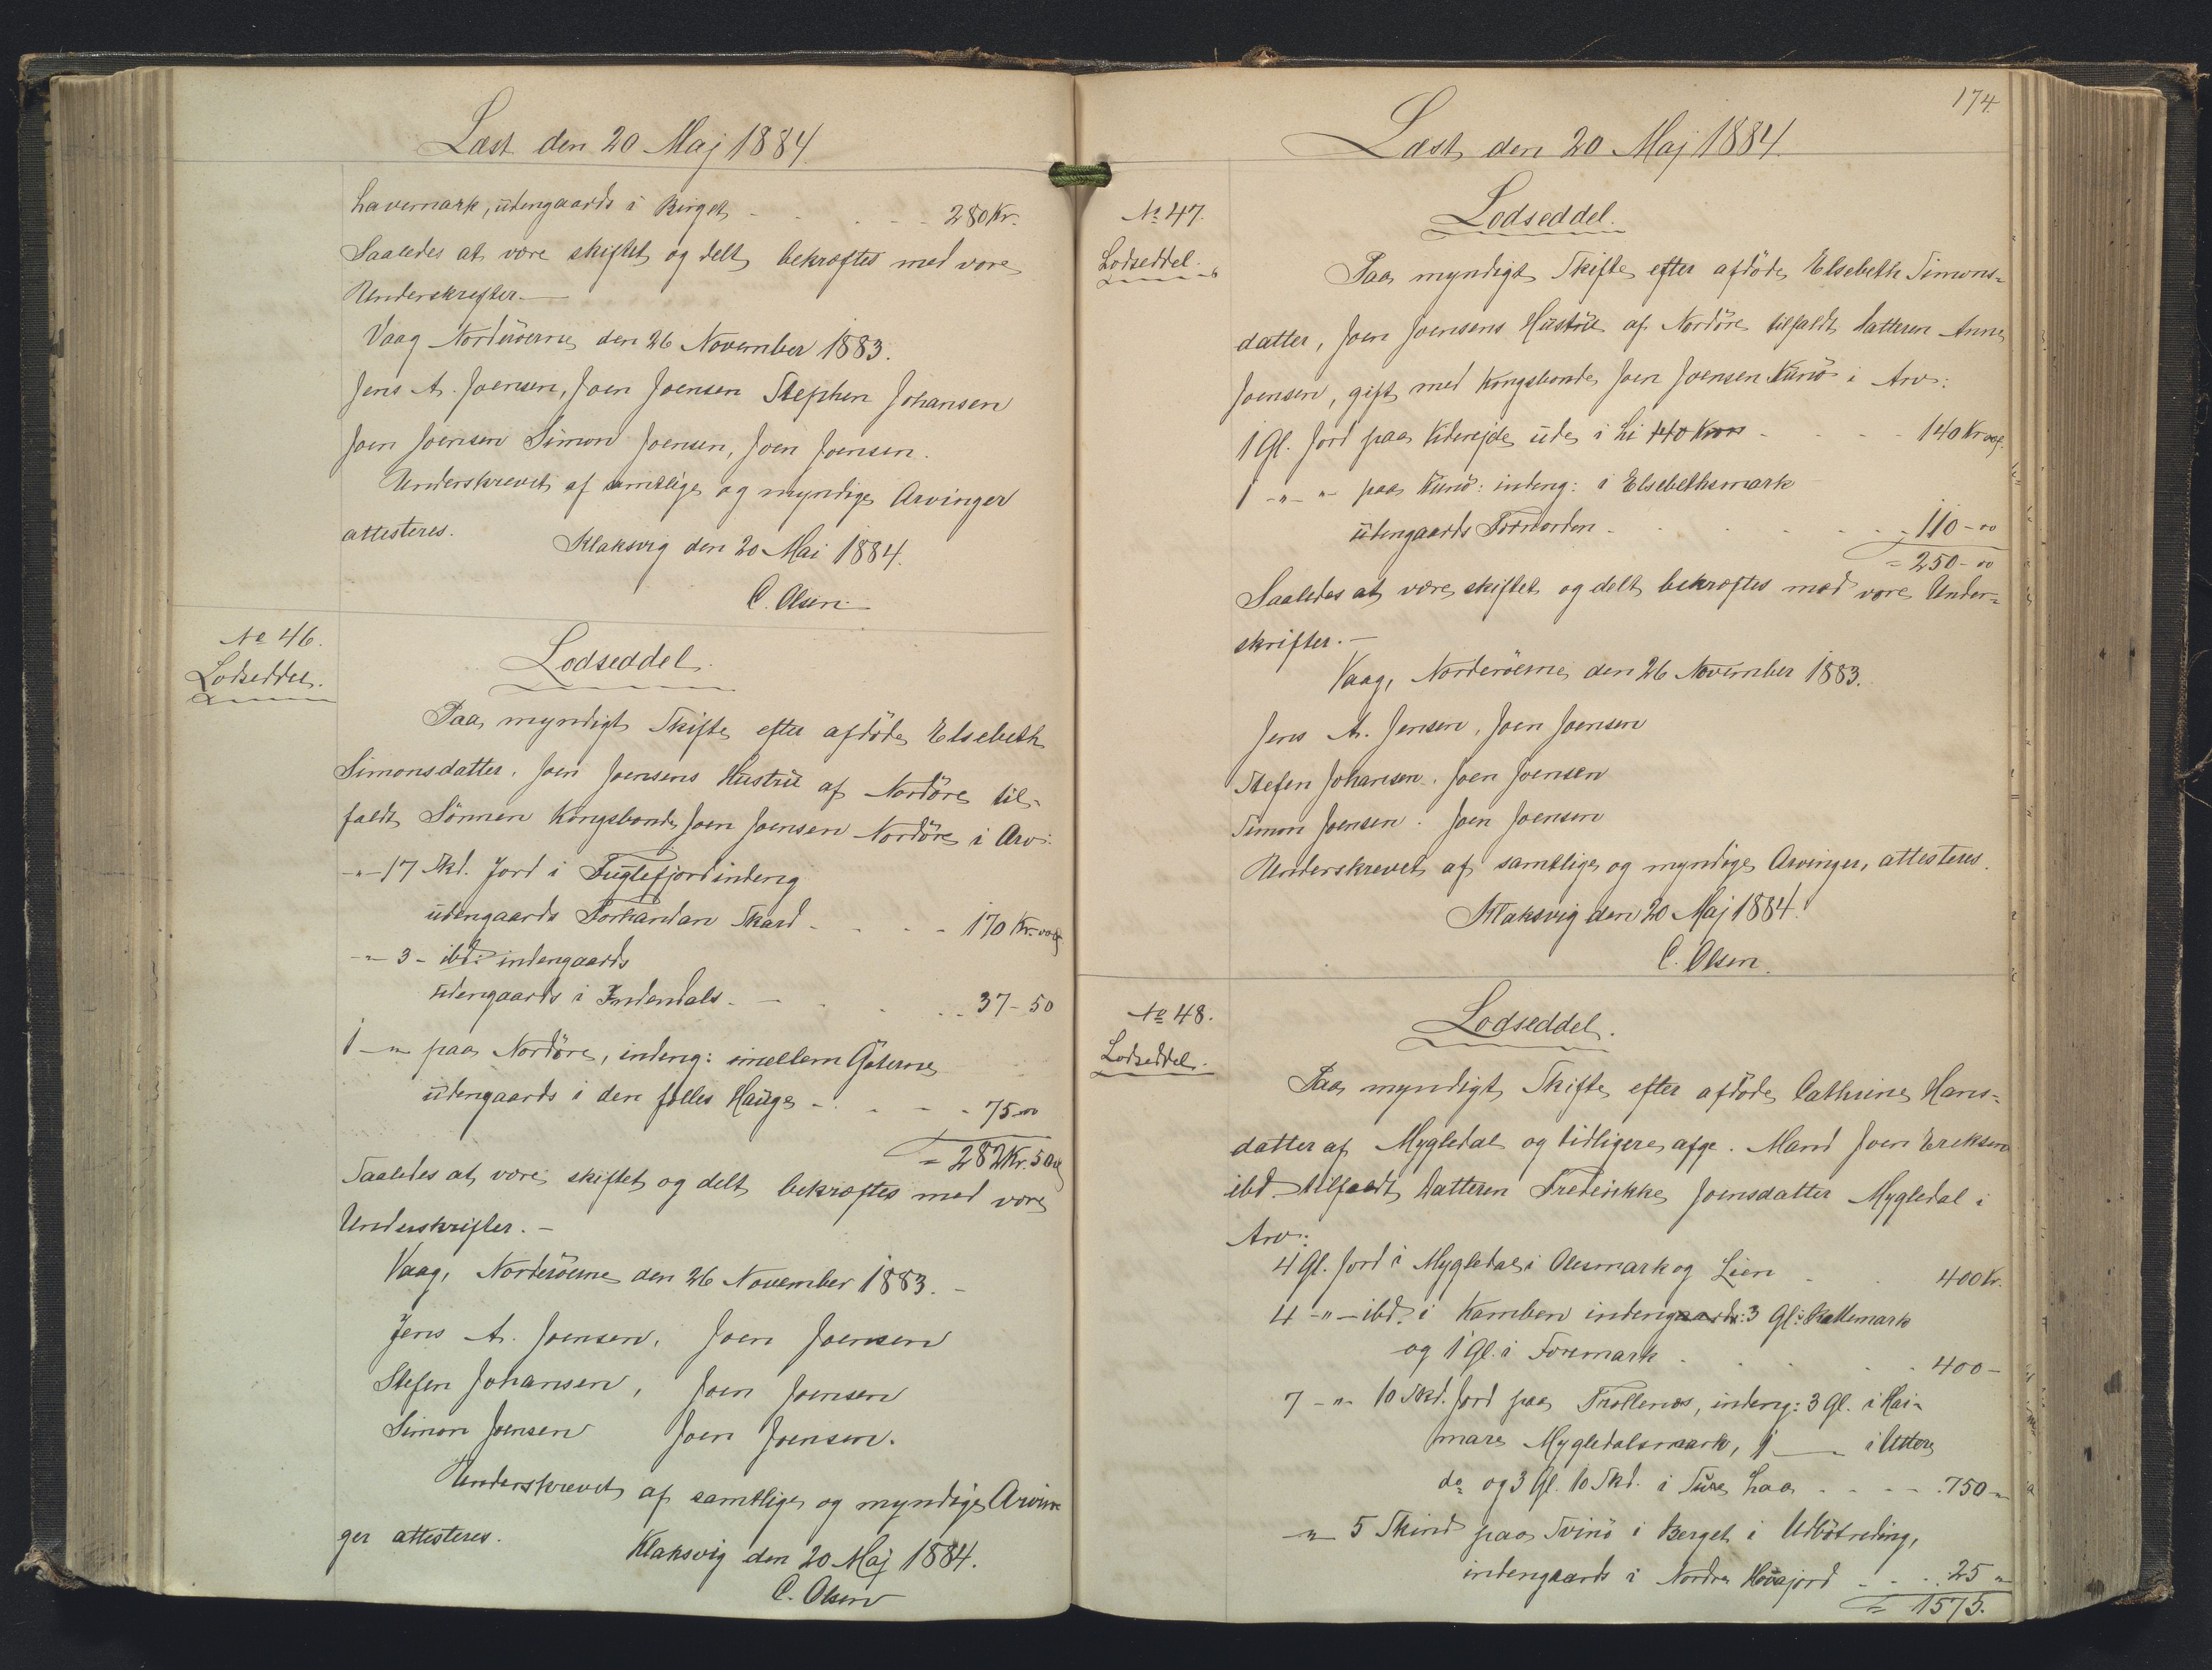 Læst den 20 Maj 1884.
Lavemark, udengaards i Birget - - - - 280 Kr.
Saaledes at være skiftet og delt bekræftes med vore
Underskrifter.—
Vaag Norderöerne den 26 November 1883.
Jens A. Joensen, Joen Joensen Stephen Johansen
Joen Joensen Simon Joensen, Joen Joensen.
Underskrevet af samtlige og myndige Arvinger
attesteres.
Klaksvig den 20 Mai 1884.
C. Olsen.
No 46.
Lodseddel.
Lodseddel.
Paa myndigt Skifte efter afdöde Elsebeth
Simonsdatter, Joen Joensens Hustru af Nordöre til-
faldt Sönnen Kongsbonde Joen Joensen Nordöre i Arv:
-"- 17 Skd. Jord i Fuglefjord indeng
udengaards Forhandan Skard - - - - 170 Kr. 00 ø
-"- 3 - ibd: indengaards
udengaards i Indendals - - - - 37 - 50
1 -"- paa Nordöre, indeng: imellem Göterne
udengaards i den fælles Hauge - - - - 75 - 00
= 282 Kr. 50 ø
Saaledes at være skiftet og delt bekræftes med vore
Underskrifter. -
Vaag, Norderöerne den 26 November 1883. -
Jens A. Joensen, Joen Joensen
Stefen Johansen, Joen Joensen
Simon Joensen Joen Joensen.
Underskrevet af samtlige og myndige Arvin
ger attesteres.
Klaksvig den 20 Maj 1884.
C. Olsen
174.
Læst den 20 Maj 1884.
No 47.
Lodseddel.
Lodseddel.
Paa myndigt Skifte efter afdöde Elsebeth Simons-
datter, Joen Joensens Hustru af Nordöre tilfaldt Datteren Anne
Joensen, gift med Kongsbonde Joen Joensen Kunö i Arv:
1 Gl. Jord paa Viderejde ude i Li 140 Kron - - - - 140 Kr 00 ø.
1 -"- " paa Kunö: indeng: i Elsebethsmark
udengaards Fornordon - - - - 110 - 00
= 250 - 00
Saaledes at være skiftet og delt bekræftes med vore Under-
skrifter. -
Vaag, Norderöerne den 26 November 1883.
Jens A. Jensen, Joen Joensen
Stefen Johansen. Joen Joensen
Simon Joensen. Joen Joensen
Underskrevet af samtlige og myndige Arvinger, attesteres.
Klaksvig den 20 Maj 1884.
C. Olsen.
No 48.
Lodseddel.
Lodseddel.
Paa myndigt Skifte efter afdöde Cathrine Hans-
datter af Mygledal og tidligere afge. Mand Joen Ereksen
ibd tilfaldt Datteren Frederikke Joensdatter Mygledal i
Arv:
4 Gl. Jord i Mygledal i Olesmark og Lien - - 400 Kr.
4 -"- ibd. i Kamben indengaards: 3 Gl: Kallemark
og 1 Gl. i Foremark - - - - 400 -
7 -"- 10 Skd. Jord paa Trøllenæs, indeng: 3 Gl. i Hai-
mare Mygledalsmark, 1 -"- i Uttere
do og 3 Gl. 10 Skd. i Ture Haa - - - - 750 -"
-"- 5 Skind paa Svinö i Berget i Udbötreding,
indengaards i Nordre Hövajord - - - 25 "
= 1575.